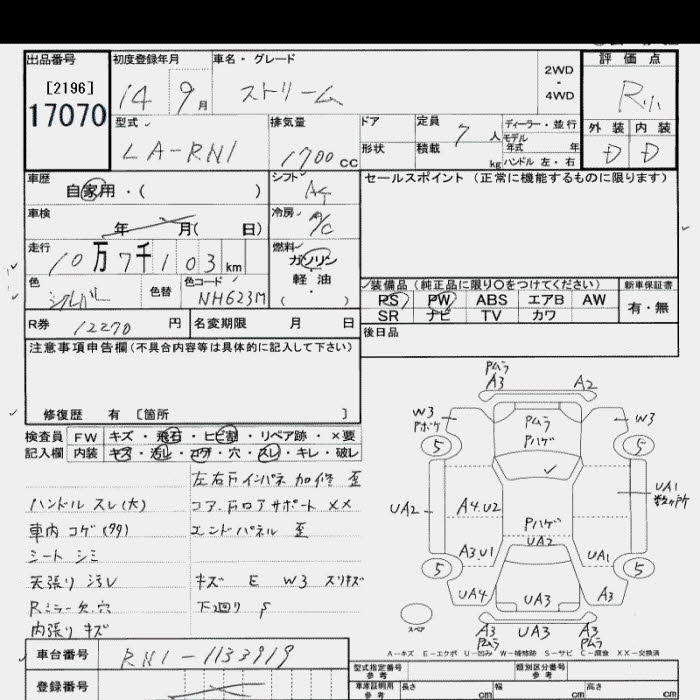 出品番号 初度登録年月 車名・グレード 2WD 評価点
[2196] 14 9月 ストリーム 4WD R小
17070 外装 内装
型式 排気量 ドア 定員 ディーラー・並行 Đ Đ
LA-RN1 1700cc 形状 積載 7人 モデル年式 年
kg ハンドル 左・右
車歴 シフト セールスポイント(正常に機能するものに限ります)
自家用・( ) A4
車検 冷房
年 月( 日) A/C
走行 燃料
10万7千103km ガソリン
軽油
( )
色 色替 色コード 装備品(純正品に限り○をつけてください) 新車保証書
シルバー NH623M PS PW ABS エアB AW 有・無
SR ナビ TV カワ
R券 12270 円 名変期限 月 日 後日品
注意事項申告欄(不具合内容等は具体的に記入して下さい)
修復歴 有 [箇所 ]
検査員 FW キズ・飛石・ヒビ割・リペア跡・×要
記入欄 内装 キズ・汚レ・コゲ・穴・スレ・キレ・破レ
左右Fインパネ加修 歪
ハンドル スレ(大) コア.Fロアサポート ××
車内 コゲ(タタ) エンドパネル 歪
シート シミ
天張り 汚レ キズ E W3 スリキズ
Rミラー欠.穴 下廻り S
内張り キズ
Pムラ
A3 A2
W3 Pボケ Pムラ Pハゲ W3
5 5
UA2 A4.U2 Pハゲ UA1 数ヶ所
UA2
A3.U1 UA1
5 5
UA4 UA3 A3
スペア A3 Pムラ UA3 A3 Pムラ
A-キズ E-エクボ U-凹み W-補修跡 S-サビ C-腐食 XX-交換済
車台番号 RN1-1133919
型式指定番号 参考 類別区分番号 参考
登録番号 車庫証明用 参考 長さ cm 幅 cm 高さ cm